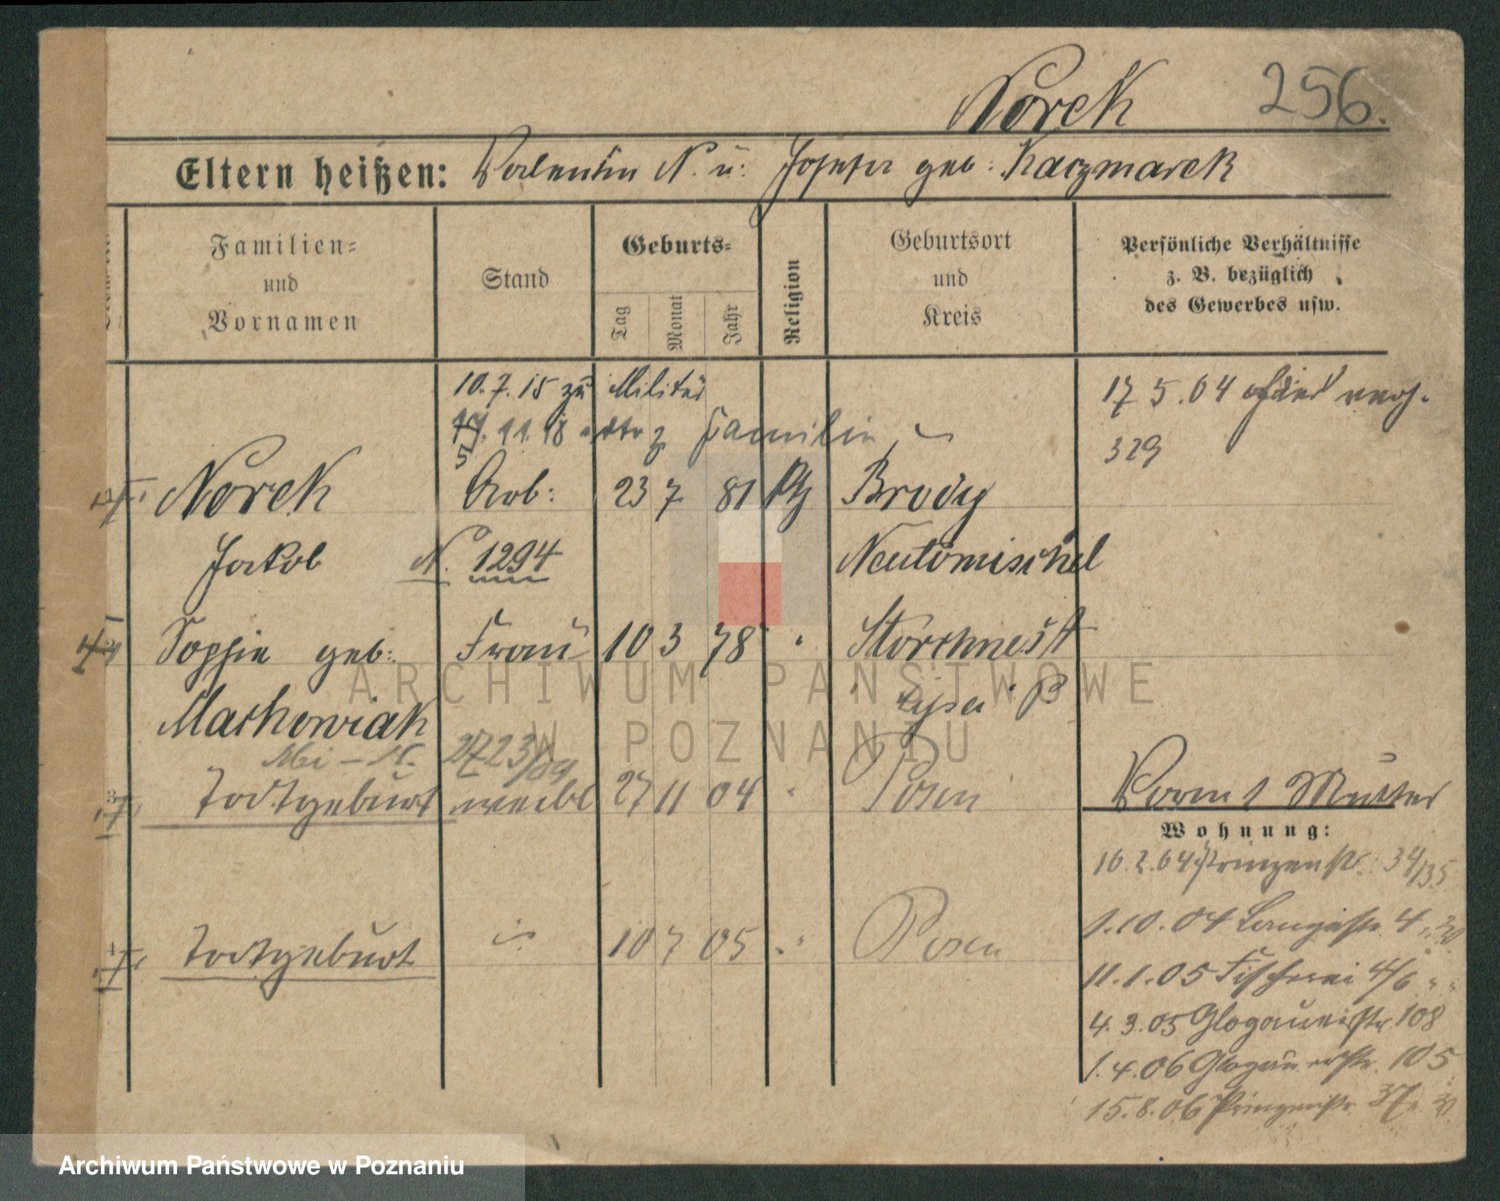 Norek 256.
Eltern heißen: Valentin N. u. Josefa geb: Kaczmarek
Familien-
und
Vornamen
Stand
Geburts-
Tag
Monat
Jahr
Religion
Geburtsort
und
Kreis
Persönliche Verhältnisse
z. B. bezüglich
des Gewerbes usw.
10.7.15 zu Militär
11.18 z Familie
17 5.04 verh.
329
Norek Arb: 23 7 81 Brody
Jakob N. 1294 Neutomischel
Sophie geb: Frau 10 3 78 " Storchnest
Markowiak
2723/09
Todtgeburt weibl 27 11 04 " Posen
Mutter
Wohnung:
16.2.04 Prinzenstr. 34/35
1.10.04 Langestr. 4
11.1.05 Fischerei 4/6 " "
4.3.05 Glogauerstr. 108
1.4.06 Glogauerstr. 105
15.8.06 Prinzenstr. 37
Todtgeburt 10 7 05 " Posen
ARCHIWUM PAŃSTWOWE
W POZNANIU
Archiwum Państwowe w Poznaniu